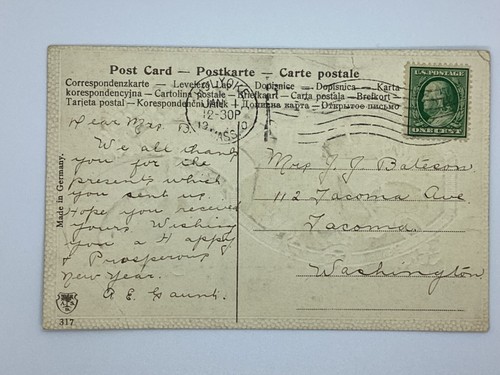 Post Card — Postkarte — Carte postale
Correspondenzkarte — Levelező-Lap — Dopisnice — Dopisnica — Karta
korespondencyjna — Cartolina postale — Briefkart — Carta postala — Brefkort —
Tarjeta postal — Korespondenční lístek — Дописна карта — Открытое письмо
U.S. POSTAGE
ONE CENT
JAN
12-30P
MASS
Dear Mrs B.
We all thank
you for the
presents which
you sent us
Hope you received
yours Wishing
you a Happy
& Prosperous
New Year.
A. E. Gaunt.
Mrs J J Bateson
112 Tacoma Ave
Tacoma
Washington
Made in Germany.
317